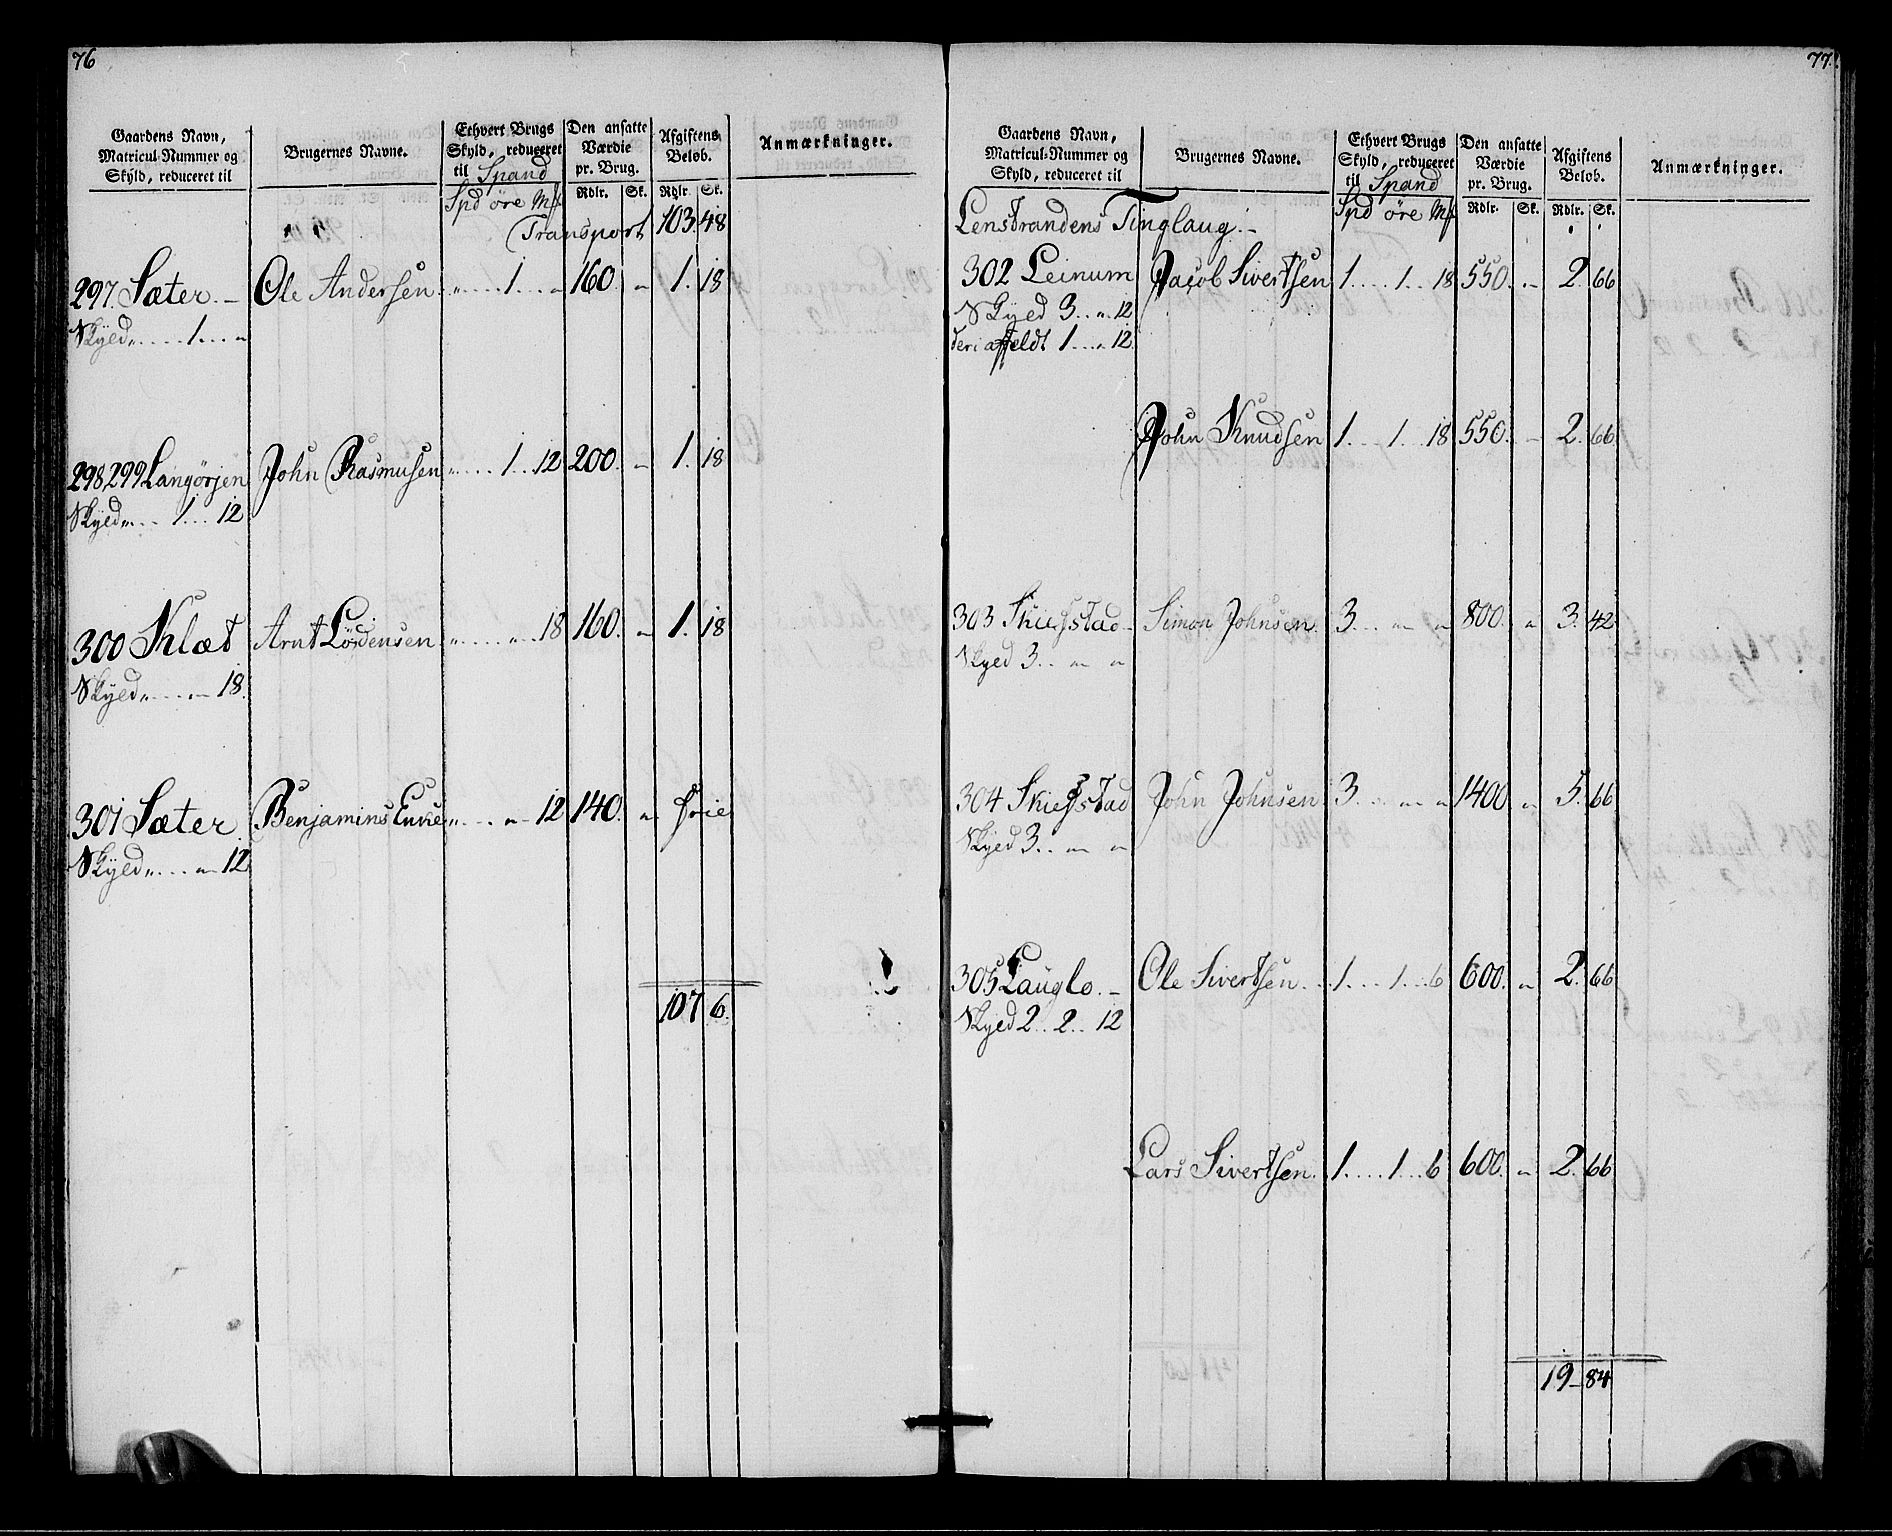 76
Gaardens Navn, Matricul-Nummer og Skyld, reduceret til | Brugernes Navne. | Ethvert Brugs Skyld, reduceret til Spand | Den ansatte Værdie pr. Brug. | Afgiftens Beløb. | Anmærkninger.
Spd øre Mk | Rdlr. | Sk. | Rdlr. | Sk.
Transport 103 48
297. Sæter. — Ole Andersen „ .... 1 ... „ 160. „ 1. 18
Skyld „ ..... 1 .... „
298, 299 Langørjen John Rasmusen „ .... 1 .. 12 200. „ 1. 18
Skyld „ ... 1 ... 12
300 Klæt Arnt Lödensen „ .... „ .. 18 160. „ 1. 18
Skyld „ ..... „ 18.
301 Sæter. Benjamins Enke „ .... „ .. 12 140. „ frie
Skyld „ .... „ 12
107 6.
77.
Gaardens Navn, Matricul-Nummer og Skyld, reduceret til | Brugernes Navne. | Ethvert Brugs Skyld, reduceret til Spand | Den ansatte Værdie pr. Brug. | Afgiftens Beløb. | Anmærkninger.
Spd øre Mk | Rdlr. | Sk. | Rdlr. | Sk.
Lenstrandens Tinglaug. —
302 Leinum Jacob Sivertsen 1 .... 1 .. 18 550. „ 2. 66
Skyld 3 .. „ 12
deri affeldt 1 ... „ 12.
John Knudsen 1 .... 1 .. 18 550. „ 2. 66
303 Skiefstad — Simon Johnsen. 3 .... „ .. „ 800. „ 3. 42
Skyld 3 .. „ „
304 Skiefstad John Johnsen 3 .... „ .. „ 1400 „ 5. 66
Skyld 3 .. „ „
305 Lauglo. — Ole Sivertsen. 1 .... 1 ... 6 600. „ 2. 66
Skyld 2 .. 2 .. 12
Lars Sivertsen. 1 .... 1 ... 6 600. „ 2. 66
19 — 84